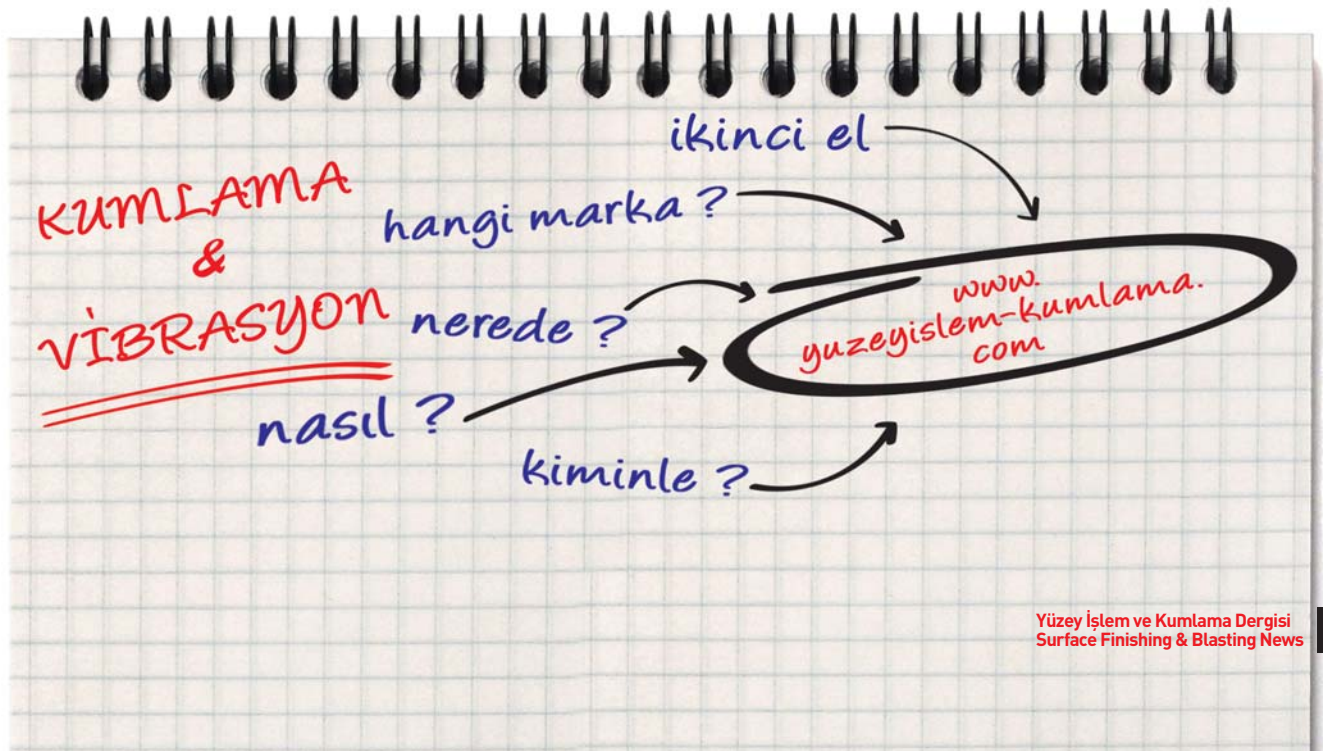 KUMLAMA
&
VİBRASYON
ikinci el
hangi marka ?
nerede ?
nasıl ?
kiminle ?
www.
yuzeyislem-kumlama.
com
Yüzey İşlem ve Kumlama Dergisi
Surface Finishing & Blasting News